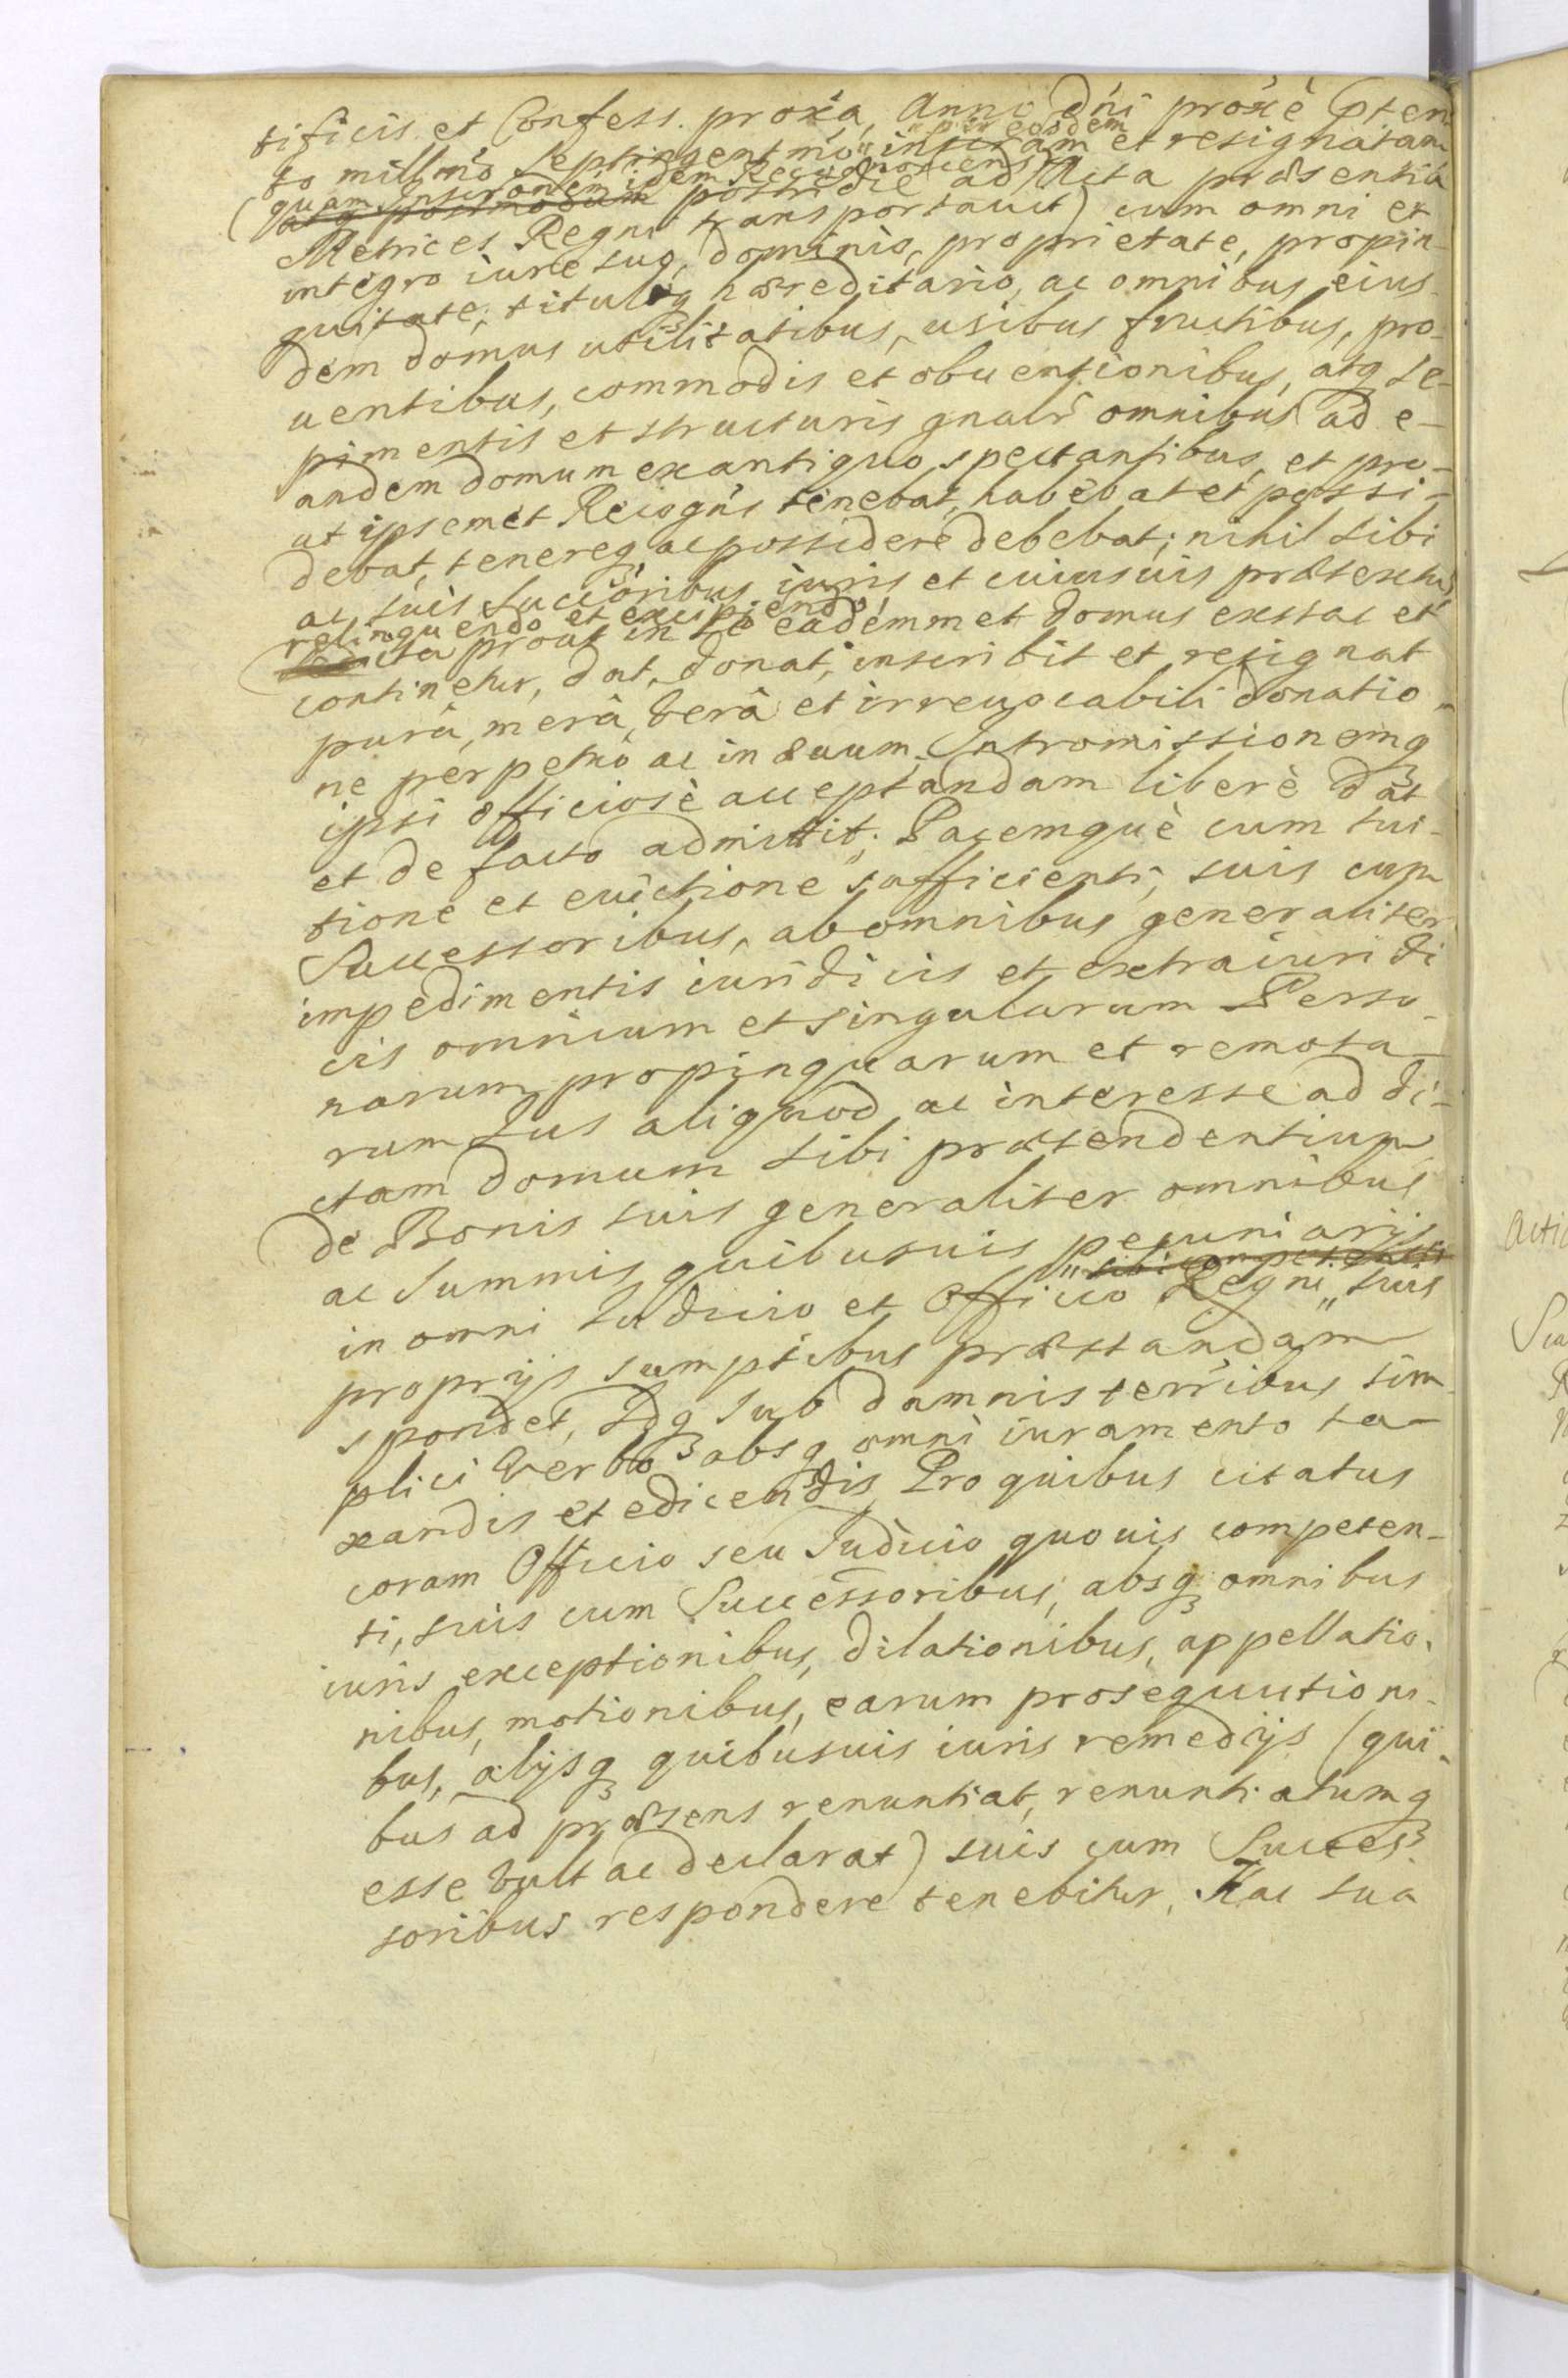 tificis et Confess. proxa, Anno dni proxe pten
"per eosdem
to millmo septingentmo" inscram et resignatam
quam Inscronem idem Recognoscens
(atq postmodum postridie ad Acta præsentia
Metrices Regni transportauit) cum omni et
integro iure suo, dominio, proprietate, propin-
quitate, tituloq hæreditario, ac omnibus eius-
dem domus utilitatibus, usibus fructibus, pro-
uentibus, commodis et obuentionibus, atq se-
pimentis et structuris gnalr omnibus ad e-
andem domum ex antiquo spectantibus, et pro-
ut ipsemet Recogns tenebat, habebat et possi-
debat, tenereq ac possidere debebat; nihil sibi
ac suis succoribus iuris et cuiusuis prætextus
relinquendo et excipiendo,
ita prout in se eademmet domus exstat et
continetur, dat, donat, inscribit et resignat
purâ, merâ, verâ et irreuocabili donatio-
ne perpetuò ac in æuum. Intromissionemq
ipsi officiosè acceptandam liberè dat
et de facto admittit; Pacemquè cum tui-
tione et euictione sufficienti, suis cum
Successoribus, ab omnibus generaliter
impedimentis iuridicis et extraiuridi
cis omnium et singularum Perso-
narum propinquarum et remota-
rum Ius aliquod ac interesse ad di-
ctam domum sibi prætendentium
de Bonis suis generaliter omnibus
ac summis quibusuis pecuniarijs
"sibi competentis
in omni Iudicio et Officio Regni" suis
proprijs sumptibus præstandam
spondet, Idq sub damnis terribus sim
plici verbo absq omni iuramento ta-
xandis et edicendis, Pro quibus citatus
coram Officio seu Iudicio quouis competen-
ti, suis cum Successoribus, absq omnibus
iuris exceptionibus, dilationibus, appellatio-
nibus, motionibus, earum prosequutioni-
bus, alijsq quibusuis iuris remedijs (qui-
bus ad præsens renuntiat, renuntiatumq
esse vult ac declarat) suis cum Succes-
soribus respondere tenebitur, Hac sua